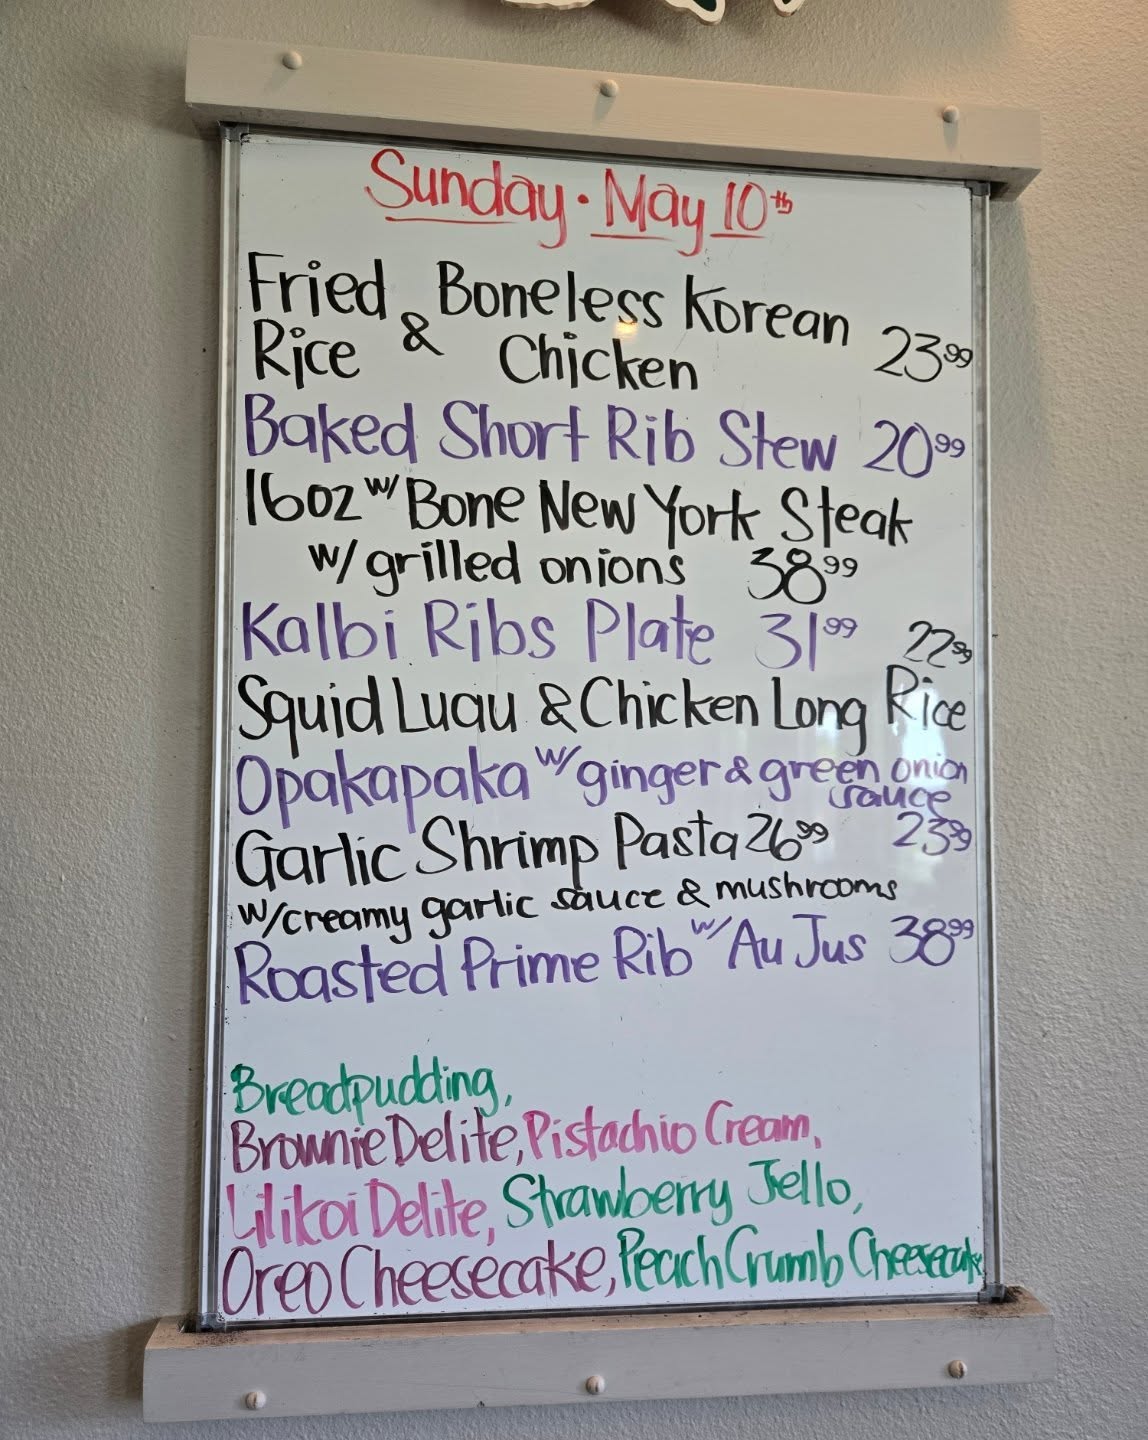 Sunday · May 10th
Fried & Boneless Korean
Rice Chicken 23.99
Baked Short Rib Stew 20.99
16oz w/ Bone New York Steak
w/ grilled onions 38.99
Kalbi Ribs Plate 31.99
Squid Luau & Chicken Long Rice 22.99
Opakapaka w/ ginger & green onion
sauce 23.99
Garlic Shrimp Pasta 26.99
w/creamy garlic sauce & mushrooms
Roasted Prime Rib w/ Au Jus 38.99
Breadpudding,
Brownie Delite, Pistachio Cream,
Lilikoi Delite, Strawberry Jello,
Oreo Cheesecake, Peach Crumb Cheesecake